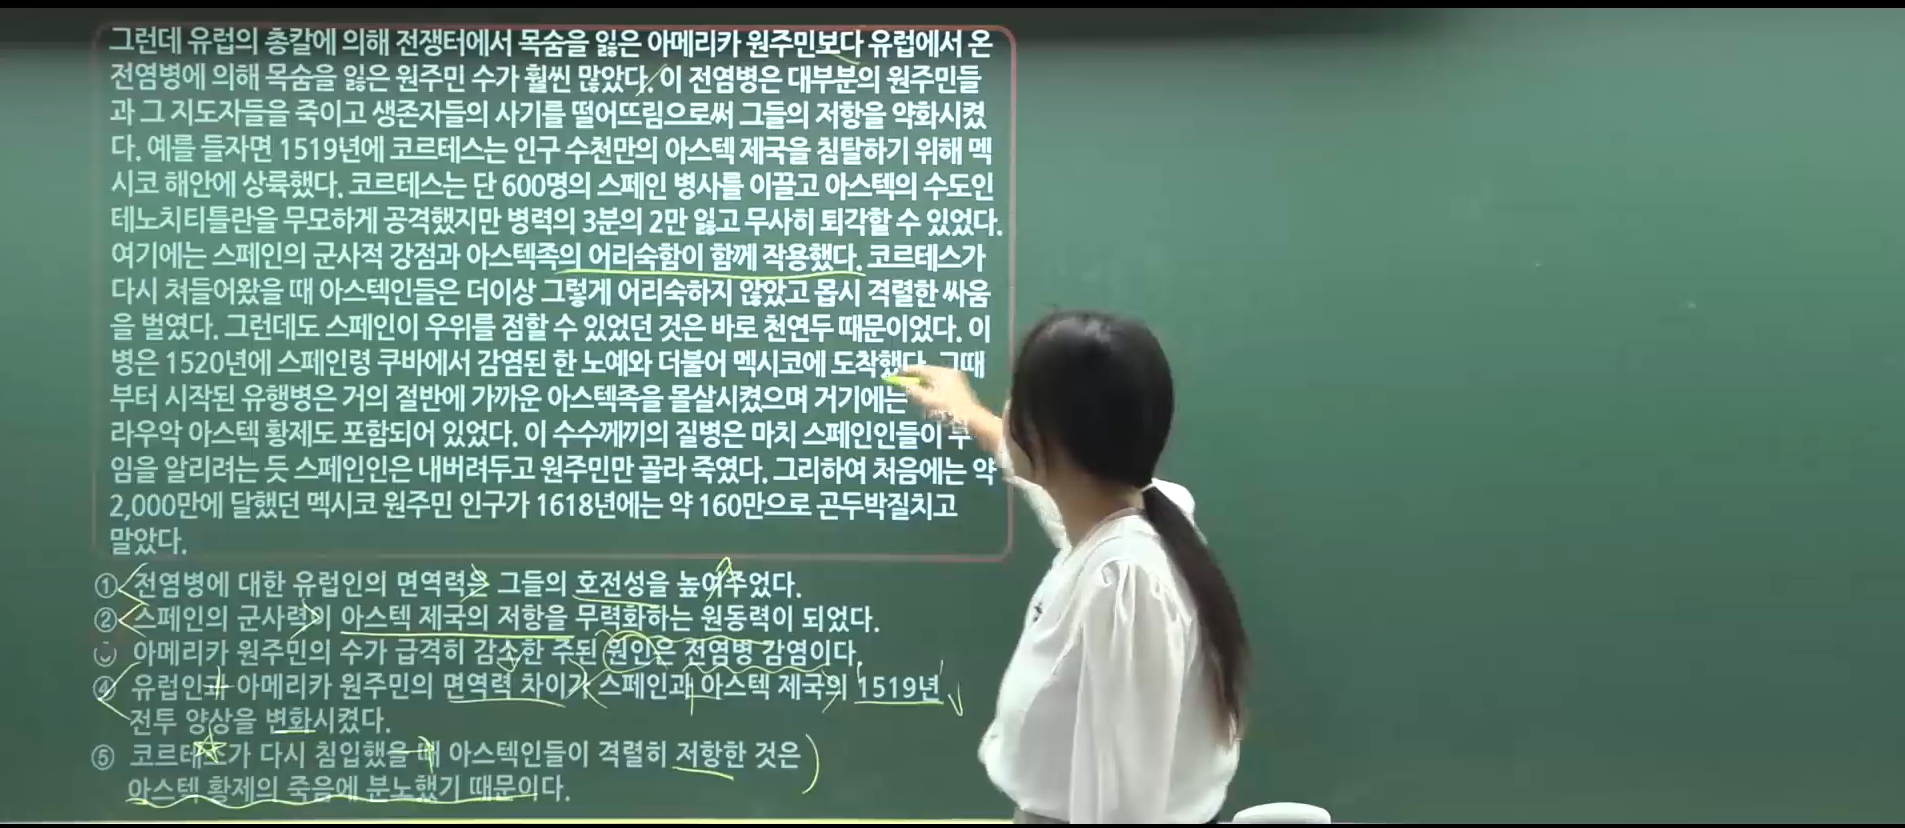 그런데 유럽의 총칼에 의해 전쟁터에서 목숨을 잃은 아메리카 원주민보다 유럽에서 온
전염병에 의해 목숨을 잃은 원주민 수가 훨씬 많았다. 이 전염병은 대부분의 원주민들
과 그 지도자들을 죽이고 생존자들의 사기를 떨어뜨림으로써 그들의 저항을 약화시켰
다. 예를 들자면 1519년에 코르테스는 인구 수천만의 아스텍 제국을 침탈하기 위해 멕
시코 해안에 상륙했다. 코르테스는 단 600명의 스페인 병사를 이끌고 아스텍의 수도인
테노치티틀란을 무모하게 공격했지만 병력의 3분의 2만 잃고 무사히 퇴각할 수 있었다.
여기에는 스페인의 군사적 강점과 아스텍족의 어리숙함이 함께 작용했다. 코르테스가
다시 쳐들어왔을 때 아스텍인들은 더이상 그렇게 어리숙하지 않았고 몹시 격렬한 싸움
을 벌였다. 그런데도 스페인이 우위를 점할 수 있었던 것은 바로 천연두 때문이었다. 이
병은 1520년에 스페인령 쿠바에서 감염된 한 노예와 더불어 멕시코에 도착했다. 그때
부터 시작된 유행병은 거의 절반에 가까운 아스텍족을 몰살시켰으며 거기에는
라우악 아스텍 황제도 포함되어 있었다. 이 수수께끼의 질병은 마치 스페인인들이
임을 알리려는 듯 스페인인은 내버려두고 원주민만 골라 죽였다. 그리하여 처음에는 약
2,000만에 달했던 멕시코 원주민 인구가 1618년에는 약 160만으로 곤두박질치고
말았다.
① 전염병에 대한 유럽인의 면역력은 그들의 호전성을 높여주었다.
② 스페인의 군사력이 아스텍 제국의 저항을 무력화하는 원동력이 되었다.
아메리카 원주민의 수가 급격히 감소한 주된 원인은 전염병 감염이다.
④ 유럽인과 아메리카 원주민의 면역력 차이가 스페인과 아스텍 제국의 1519년
전투 양상을 변화시켰다.
⑤ 코르테스가 다시 침입했을 때 아스텍인들이 격렬히 저항한 것은
아스텍 황제의 죽음에 분노했기 때문이다.